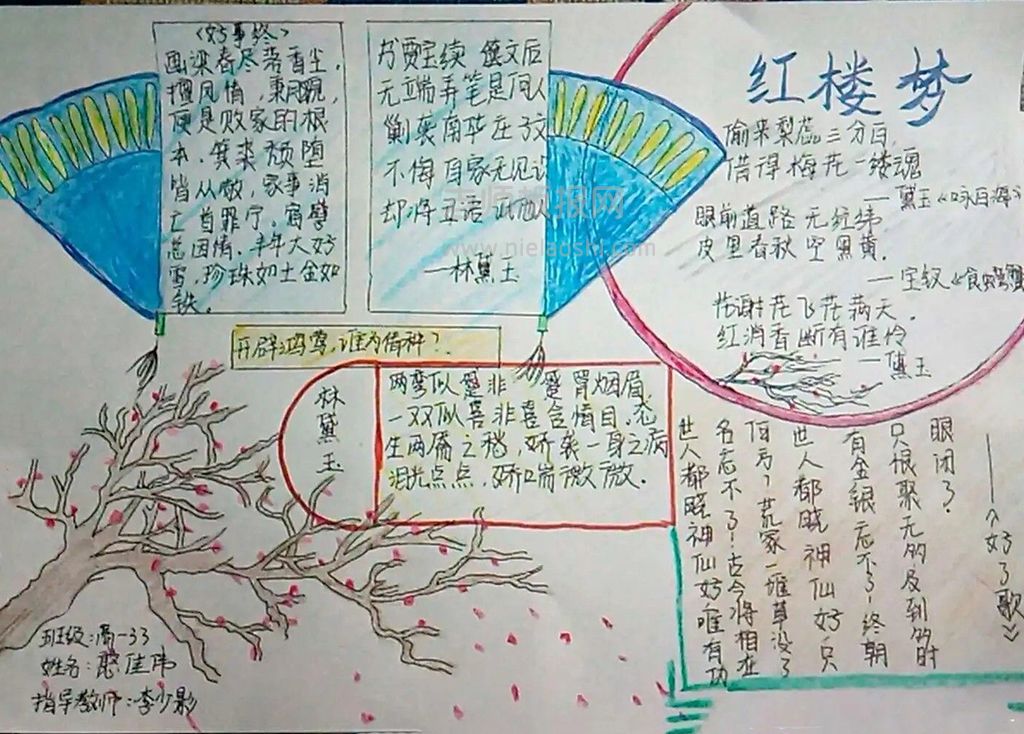 红楼梦
《好事终》
画梁春尽落香尘.
擅风情，秉月貌，
便是败家的根
本.箕裘颓堕
皆从敬，家事消
亡首罪宁。宿孽
总因情.丰年大好
雪,珍珠如土金如
铁.
书贾宝续 文后
无端弄笔是何人
剿袭南华庄子文
不悔自家无见识
却将丑语
—林黛玉
偷来梨蕊三分白,
借得梅花一缕魂
—黛玉《咏白海》
眼前道路无经纬
皮里春秋空黑黄.
—宝钗《食螃蟹
花谢花飞花满天.
红消香断有谁怜
—黛玉
开辟鸿蒙,谁为情种?
林黛玉
两弯似蹙非 蹙罥烟眉.
一双似喜非喜含情目.态
生两靥之愁,娇袭一身之病
泪光点点,娇喘微微.
——《好了歌》
世人都晓神仙好唯有功
名忘不了!古今将相在
何方?荒冢一堆草没了
世人都晓神仙好只
有金银忘不了!终朝
只恨聚无多及到多时
眼闭了
班级:高一33
姓名: 佳伟
指导教师:李少影
www.nielaoshi.com